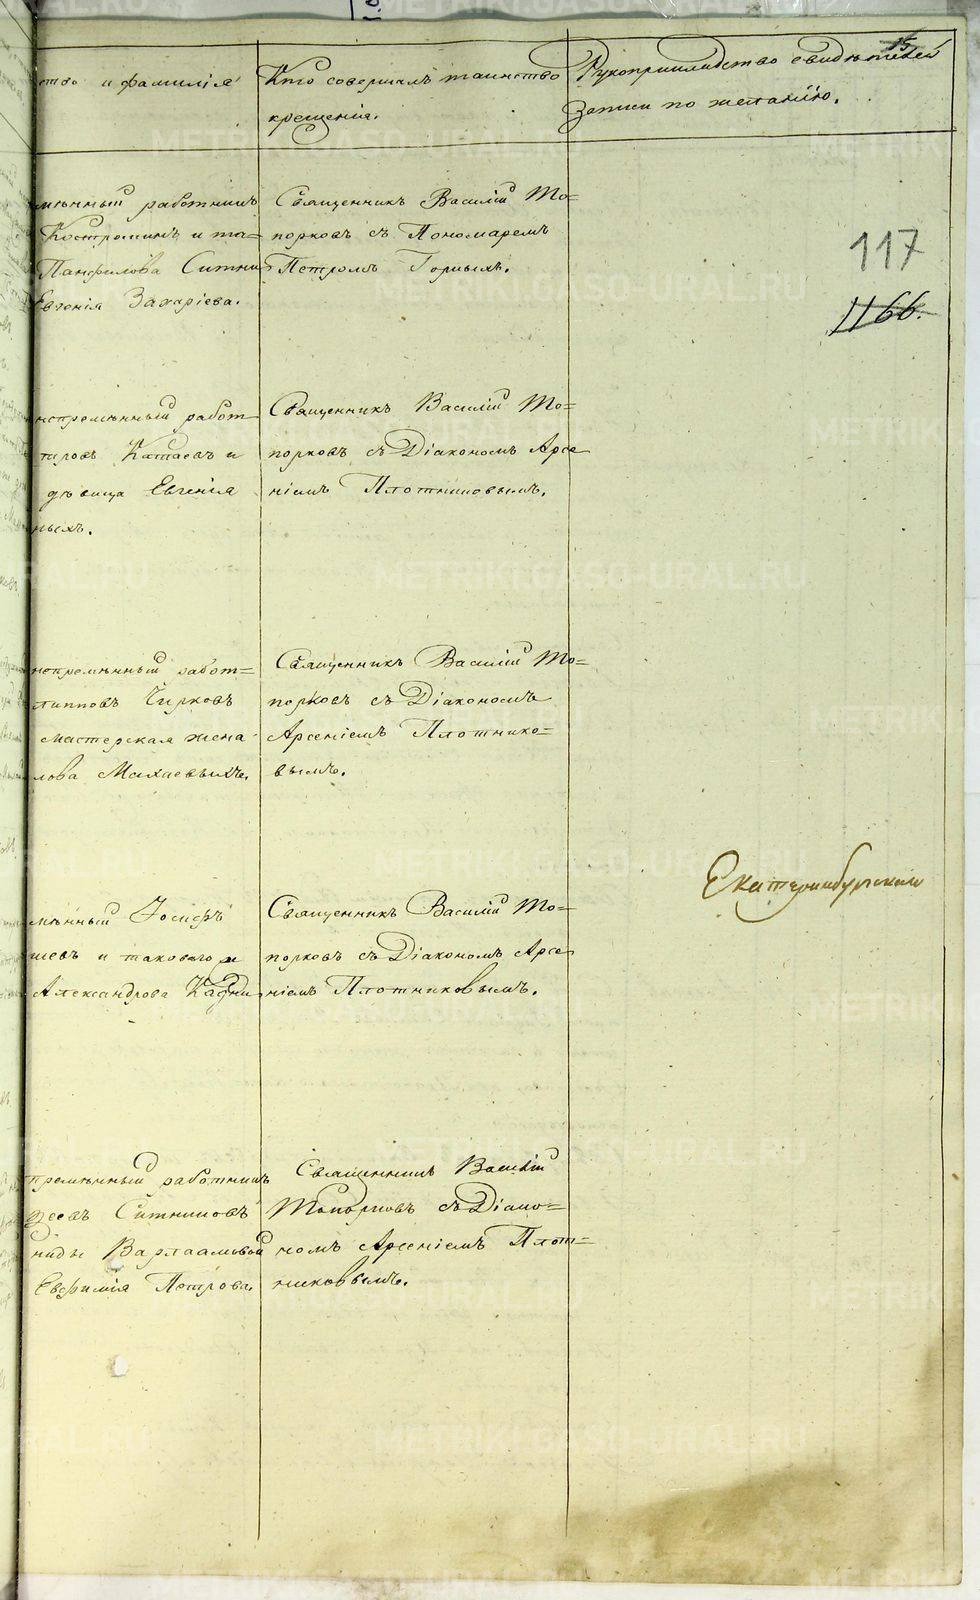 15
ство и фамилія
Кто совершалъ таинство
крещенія.
Рукоприкладство свидѣтелей
записи по желанію.
117
1166.
мѣнный работникъ
Костроминъ и та=
Панфилова Ситни
Евгенія Захаріева.
Священникъ Василій То=
порковъ съ Пономаремъ
Петромъ Горныхъ.
непремѣнный работ
тировъ Катаевъ и
дѣвица Евгенія
ныхъ.
Священникъ Василій То=
порковъ съ Діакономъ Арсе
ніемъ Плотниковымъ.
непремѣнный работ=
липповъ Чирковъ
мастерская жена
лова Махаевыхъ.
Священникъ Василій То=
порковъ съ Діакономъ
Арсеніемъ Плотнико=
вымъ.
Екатеринбургской
мѣнный Іосифъ
шевъ и таковаго
Александрова Кадни
Священникъ Василій То=
порковъ съ Діакономъ Арсе
ніемъ Плотниковымъ.
премѣнный работникъ
Ситниковъ
ниды Варлаамовой
Евфимія Петрова.
Священникъ Василій
Топорковъ съ Діако=
номъ Арсеніемъ Плот=
никовымъ.
METRIKI.GASO-URAL.RU